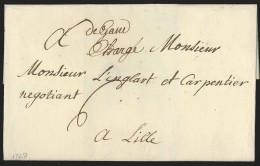 de Gand
Chargé Monsieur
Monsieur Lenglart et Carpentier
negotiant
6
a Lille